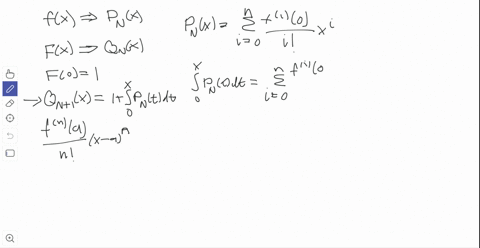 f(x) ⇒ P_N(x)
F(x) ⇒ Q_N(x)
F(0) = 1
→ Q_{N+1}(x) = 1 + ∫_0^x P_N(t) dt
f^{(n)}(a)/n! (x-a)^n
P_N(x) = ∑_{i=0}^{n} f^{(i)}(0)/i! x^i
∫_0^x P_N(t) dt = ∑_{i=0}^{n} f^{(i)}(0